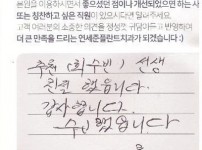 본원을 이용하시면서 좋으셨던 점이나 개선되었으면 하는 사
또는 칭찬하고 싶은 직원이 있으시다면 말해주세요.
고객 여러분의 소중한 의견을 성정껏 귀담아듣고 반영하여
더 큰 만족을 드리는 연세준플란트치과가 되겠습니다 :)
(최수빈) 선생
친절 했습니다.
감사 합니다.
수빈